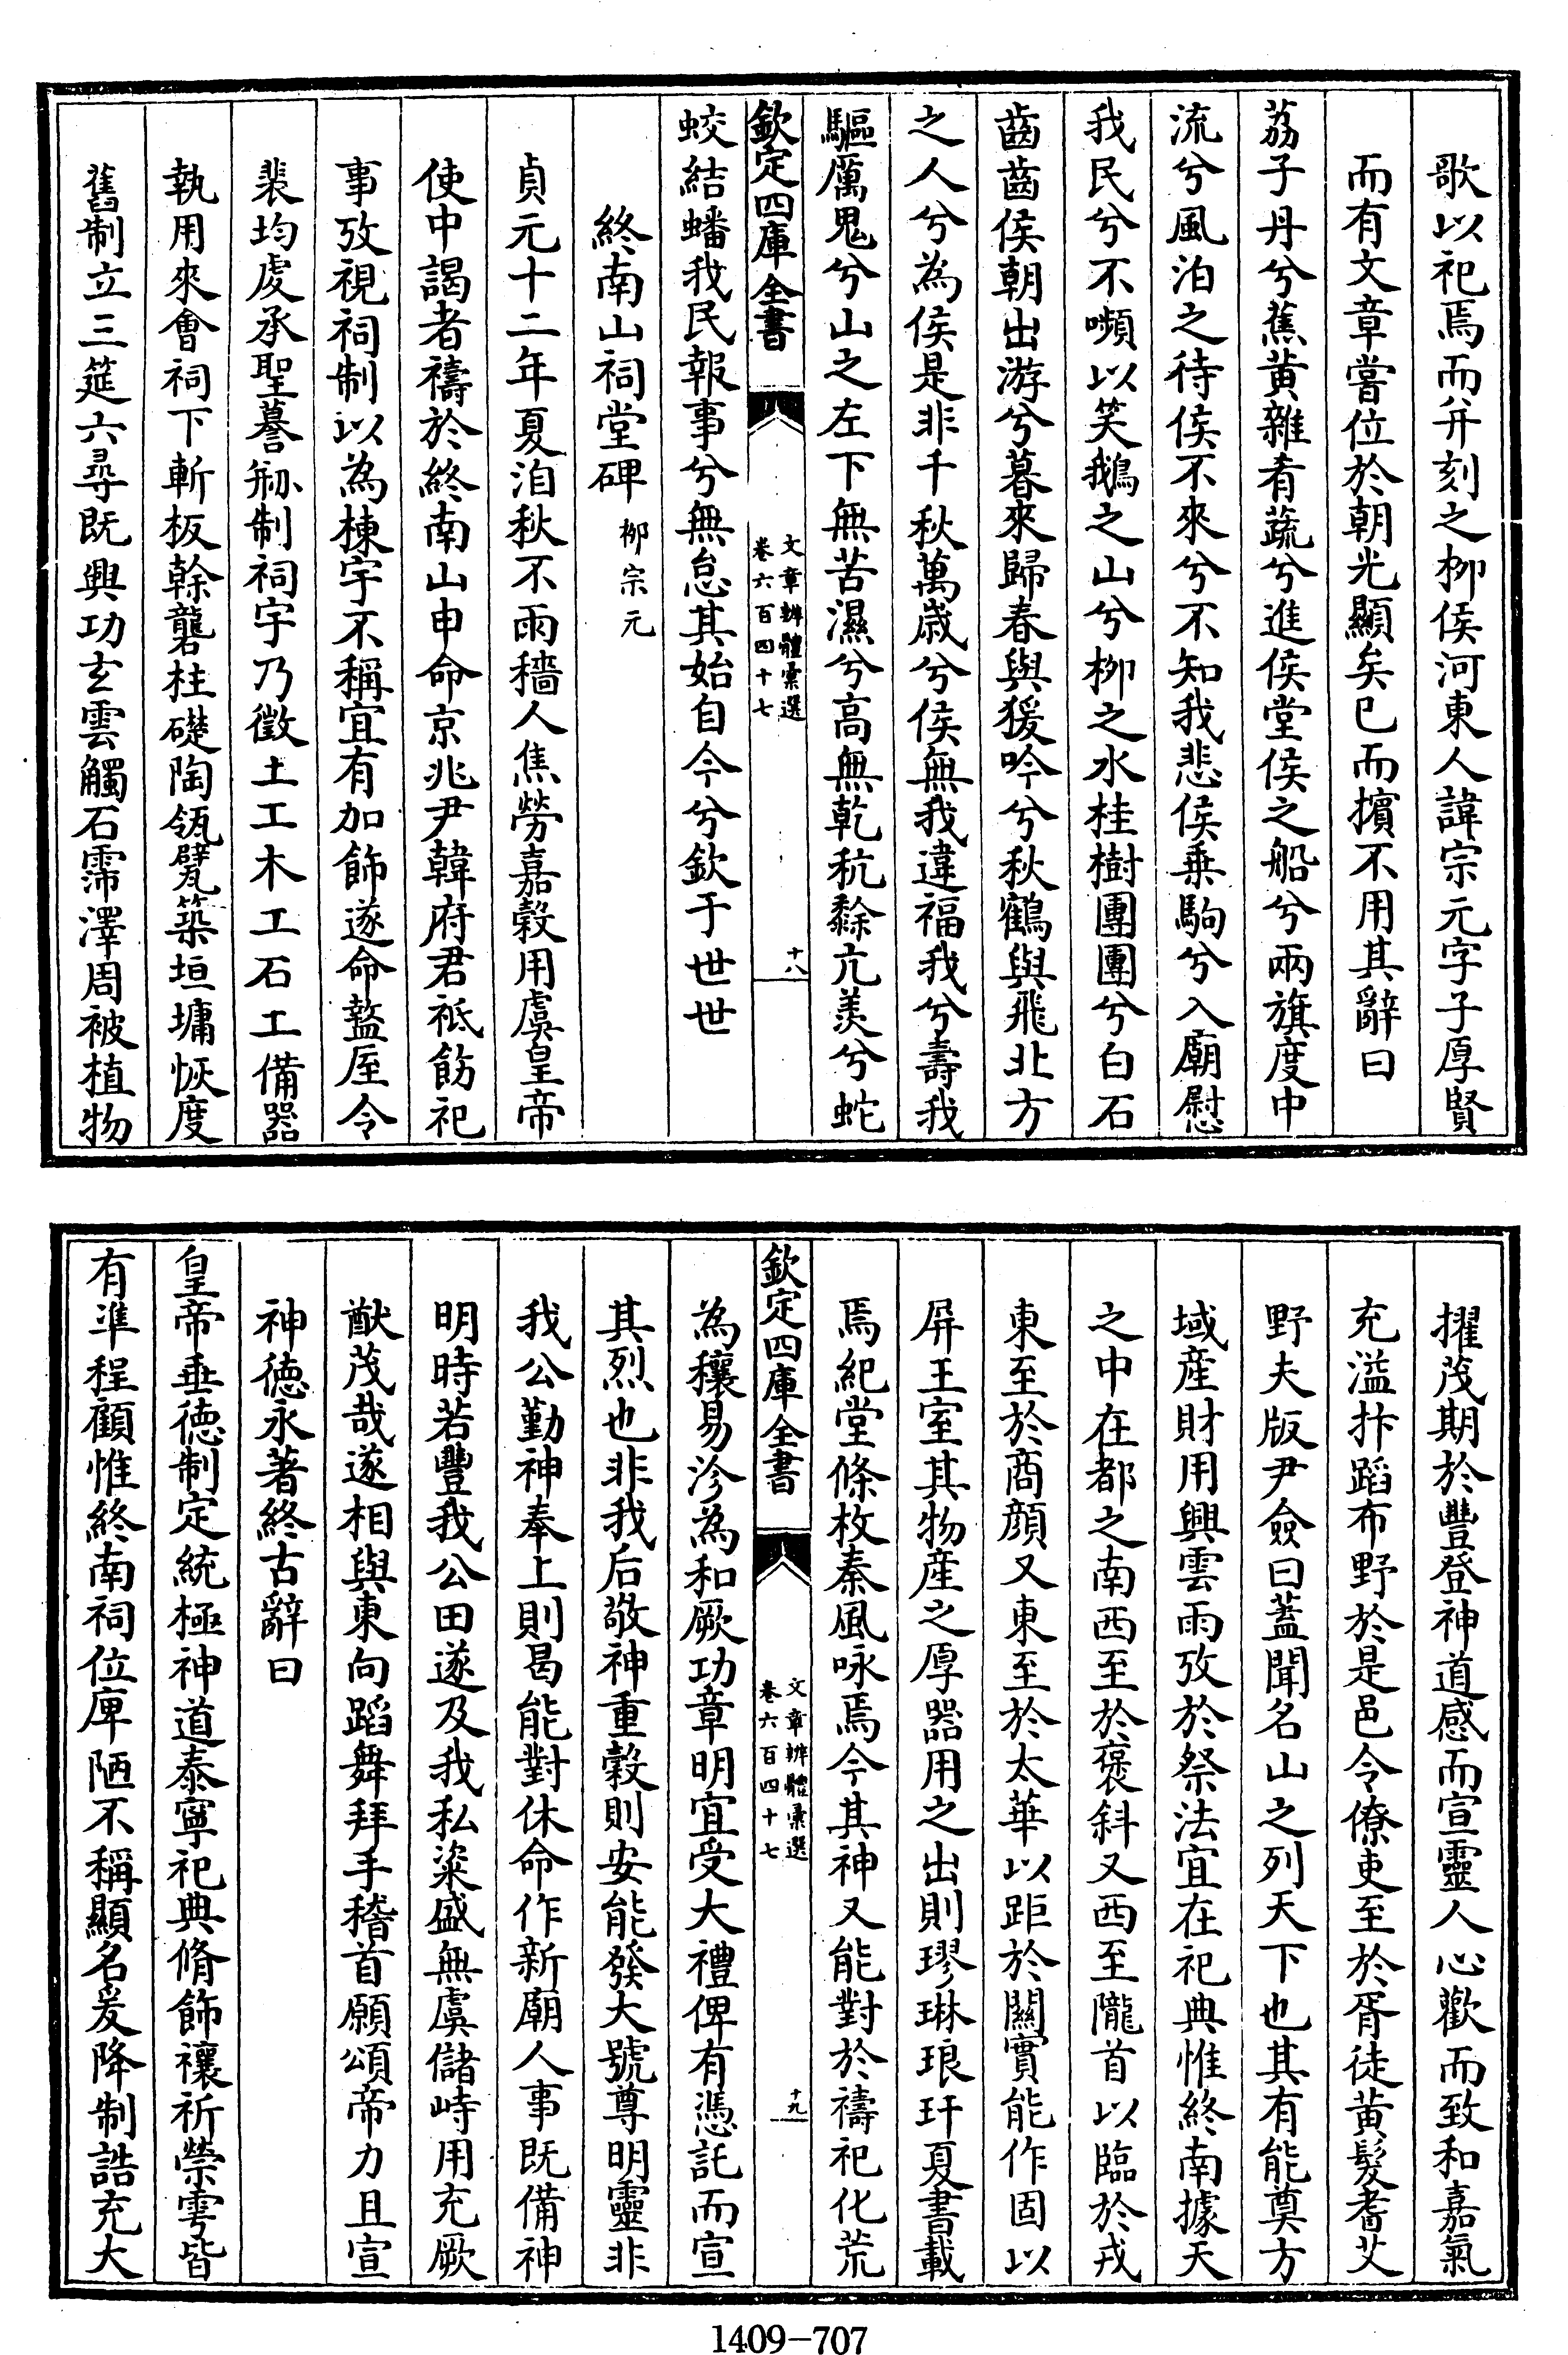 歌以祀焉而并刻之柳侯河東人諱宗元字子厚賢
而有文章嘗位於朝光顯矣已而擯不用其辭曰
荔子丹兮蕉黄雜肴蔬兮進侯堂侯之船兮兩旗度中
流兮風泊之待侯不來兮不知我悲侯乗駒兮入廟慰
我民兮不嚬以笑鵝之山兮柳之水桂樹團團兮白石
齒齒侯朝出游兮暮來歸春與猨吟兮秋鶴與飛北方
之人兮為侯是非千秋萬歲兮侯無我違福我兮壽我
驅厲鬼兮山之左下無苦濕兮高無乾秔稌充羙兮蛇
欽定四庫全書
文章辨體彚選
卷六百四十七
十八
蛟結蟠我民報事兮無怠其始自今兮欽于世世
終南山祠堂碑 柳宗元
貞元十二年夏洎秋不雨穡人焦勞嘉穀用虞皇帝
使中謁者禱於終南山申命京兆尹韓府君祗飭祀
事攷視祠制以為棟宇不稱宜有加飾遂命盩厔令
裴均虔承聖謩剏制祠宇乃徵土工木工石工備器
執用來會祠下斬板榦礱柱礎陶瓴甓築垣墉恢度
舊制立三筵六尋既興功玄雲觸石霈澤周被植物
擢茂期於豐登神道感而宣靈人心歡而致和嘉氣
充溢抃蹈布野於是邑令僚吏至於胥徒黄髮耆艾
野夫版尹僉曰蓋聞名山之列天下也其有能奠方
域産財用興雲雨攷於祭法宜在祀典惟終南據天
之中在都之南西至於褒斜又西至隴首以臨於戎
東至於商顔又東至於太華以距於關實能作固以
屏王室其物産之厚器用之出則璆琳琅玕夏書載
焉紀堂條枚秦風咏焉今其神又能對於禱祀化荒
欽定四庫全書
文章辨體彚選
卷六百四十七
十九
為穰易沴為和厥功章明宜受大禮俾有憑託而宣
其烈也非我后敬神重穀則安能發大號尊明靈非
我公勤神奉上則曷能對休命作新廟人事既備神
明時若豐我公田遂及我私粢盛無虞儲峙用充厥
猷茂哉遂相與東向蹈舞拜手稽首願頌帝力且宣
神徳永著終古辭曰
皇帝垂徳制定統極神道泰寧祀典脩飾禳祈禜雩皆
有準程顧惟終南祠位庳陋不稱顯名爰降制誥充大
1409-707